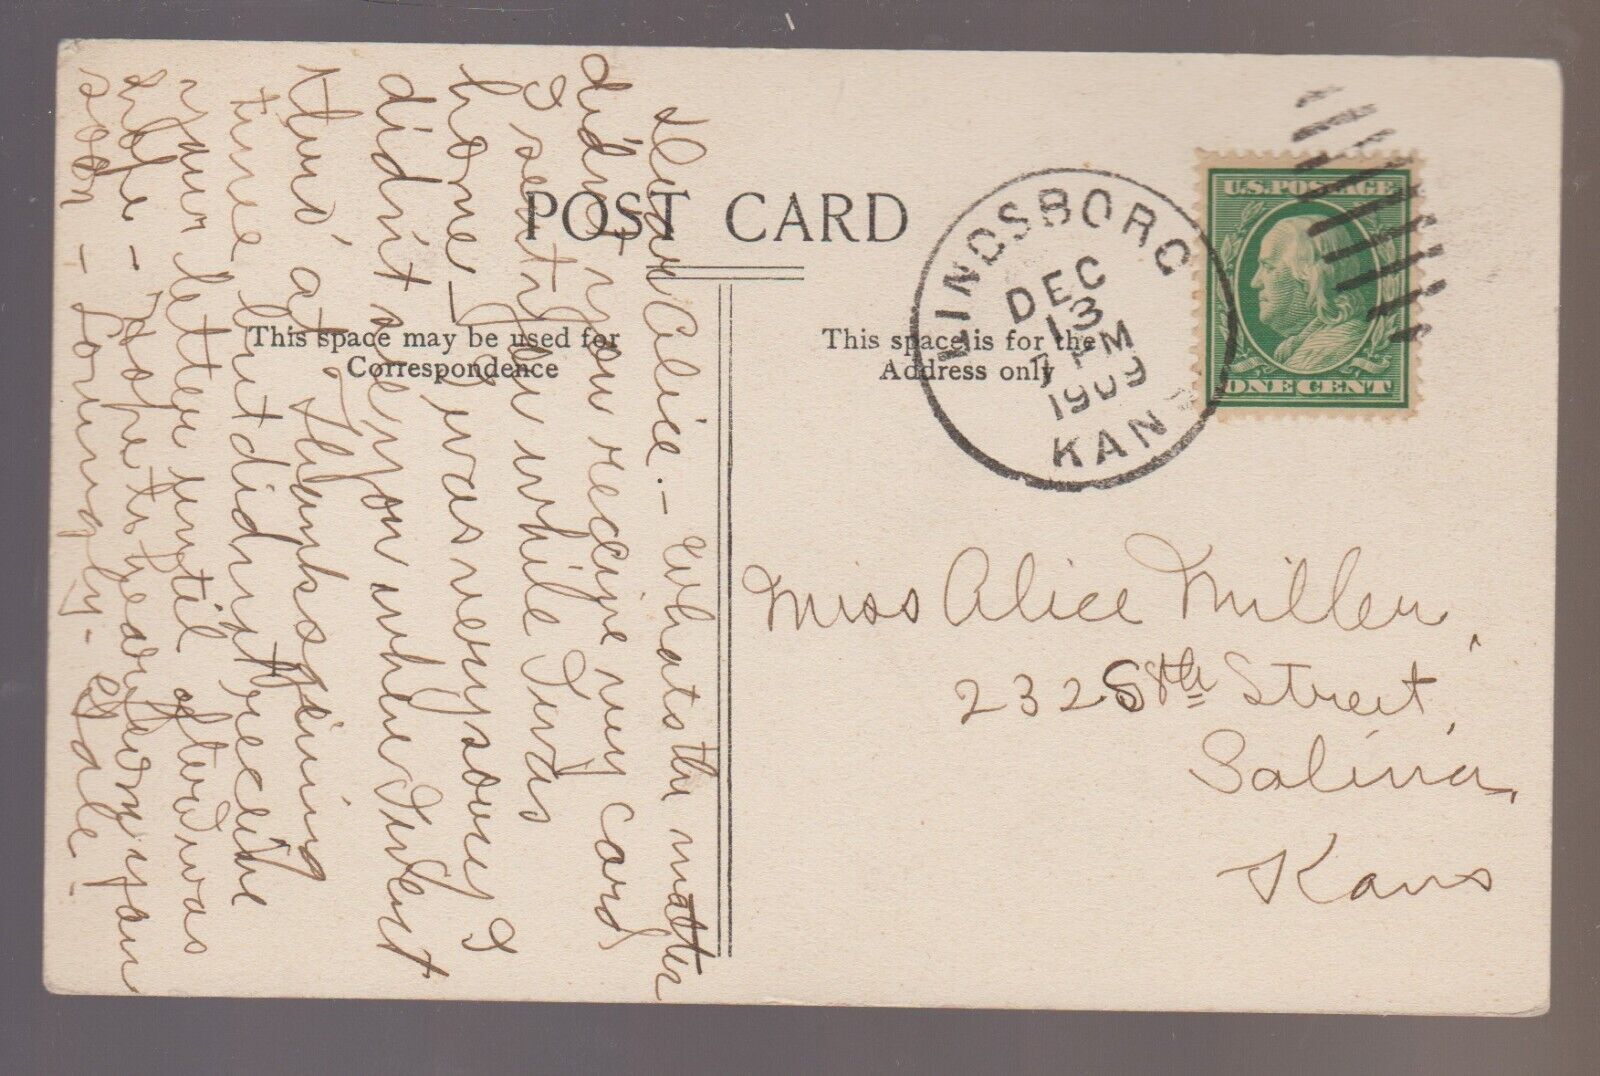 POST CARD
This space may be used for
Correspondence
This space is for the
Address only
LINDSBORG
DEC
13
7 PM
1909
KAN
U.S. POSTAGE
ONE CENT
Dear Alice. – Whats the matter
didn't you receive my card
I sent you while I was
home – I was very sorry I
didn't see you when I went
thru' at Thanksgiving
time but didn't receive
your letter until after I was
– Hope to hear from you
soon – Lovingly –
Miss Alice Miller,
232 S 8th Street,
Salina,
Kans